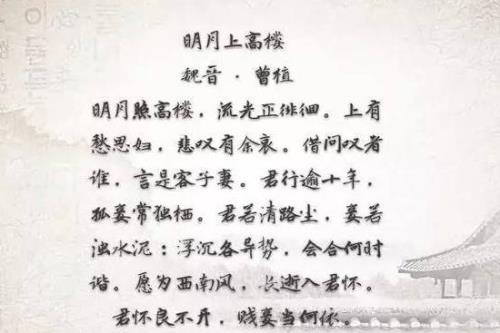 明月上高楼
魏晋·曹植
明月照高楼，流光正徘徊。上有
愁思妇，悲叹有余哀。借问叹者
谁，言是客子妻。君行逾十年，
孤妾常独栖。君若清路尘，妾若
浊水泥：浮沉各异势，会合何时
谐。愿为西南风，长逝入君怀。
君怀良不开，贱妾当何依。